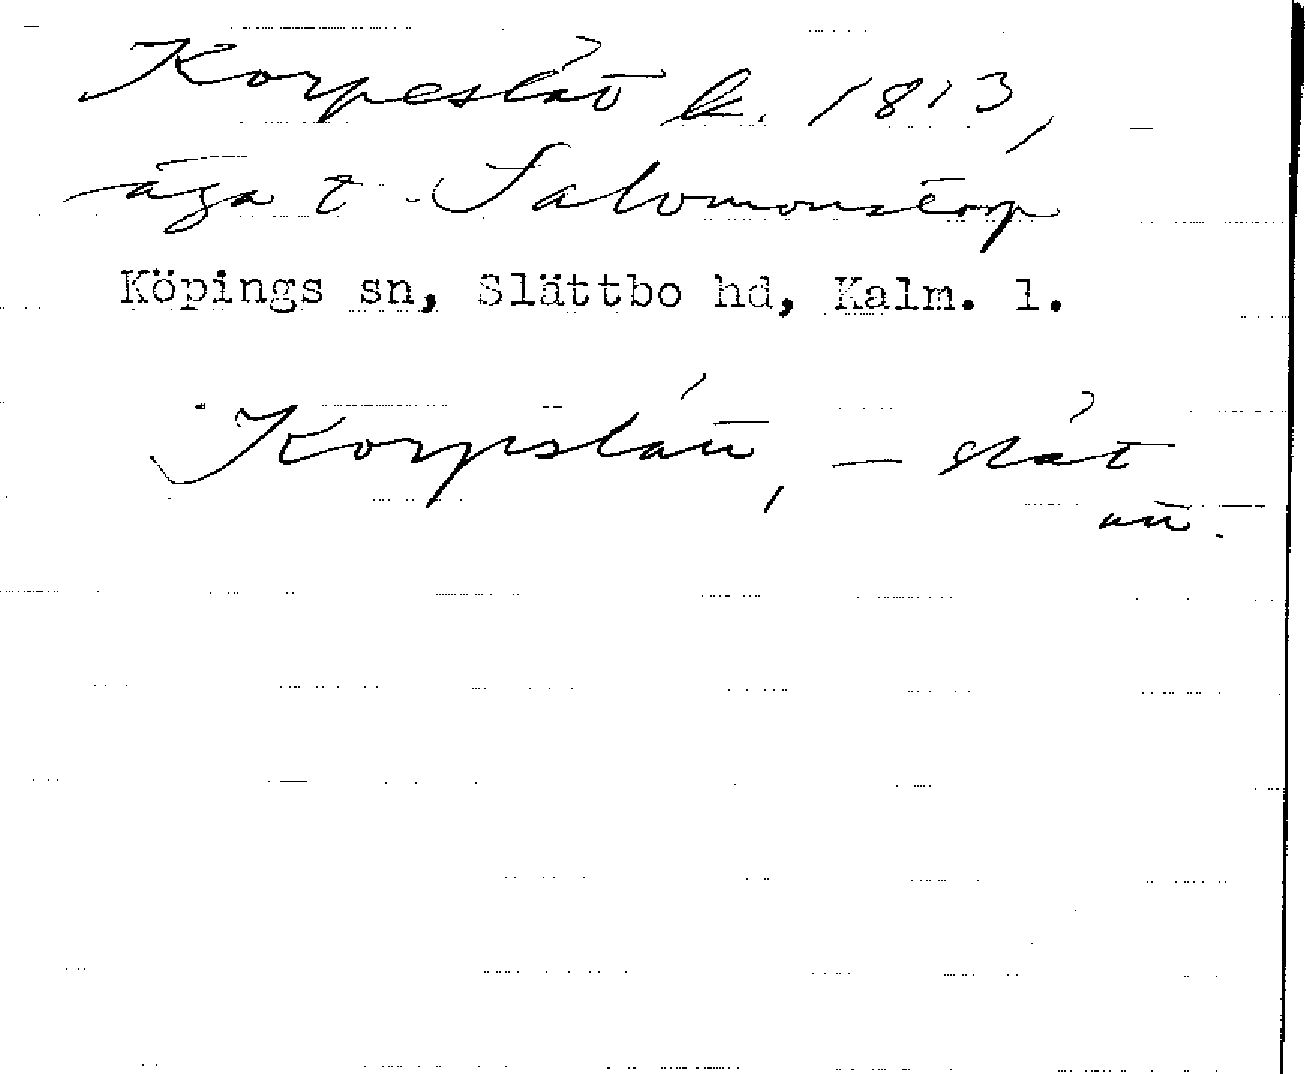 Korpeslåt k. 1813,
äga t. Salomonstorp
Köpings sn, Slättbo hd, Kalm. l.
Korpslått, – slåt